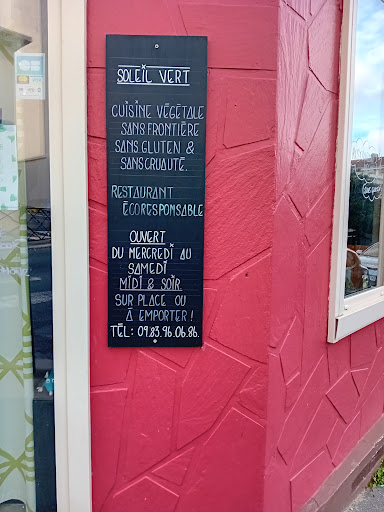 SOLEIL VERT
CUISINE VÉGÉTALE
SANS FRONTIÈRE
SANS GLUTEN &
SANS CRUAUTÉ.
RESTAURANT
ÉCORESPONSABLE
OUVERT
DU MERCREDI AU
SAMEDI
MIDI & SOIR.
SUR PLACE OU
À EMPORTER !
TÉL : 09.83.96.06.86.